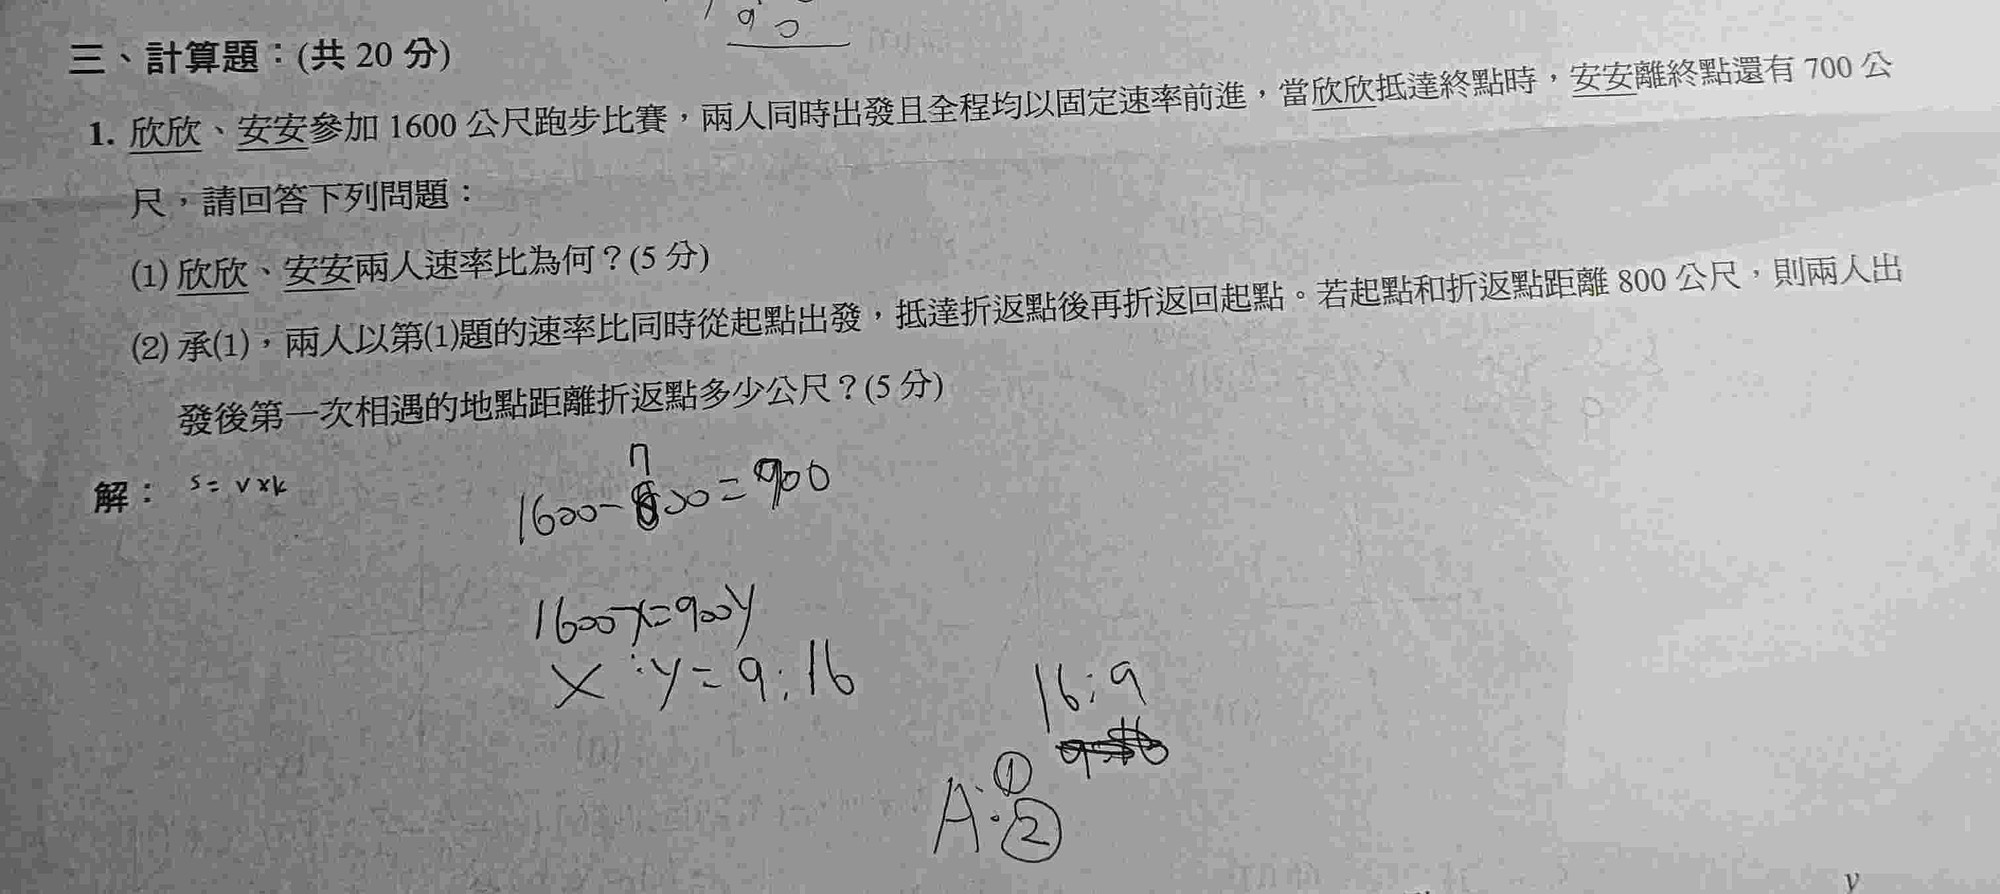 90
三、計算題：(共 20 分)
1. 欣欣、安安參加 1600 公尺跑步比賽，兩人同時出發且全程均以固定速率前進，當欣欣抵達終點時，安安離終點還有 700 公
尺，請回答下列問題：
(1) 欣欣、安安兩人速率比為何？(5 分)
(2) 承(1)，兩人以第(1)題的速率比同時從起點出發，抵達折返點後再折返回起點。若起點和折返點距離 800 公尺，則兩人出
發後第一次相遇的地點距離折返點多少公尺？(5 分)
解： s=v×k
1600-700=900
1600x=900y
x:y=9:16
16:9
A:①
②
y